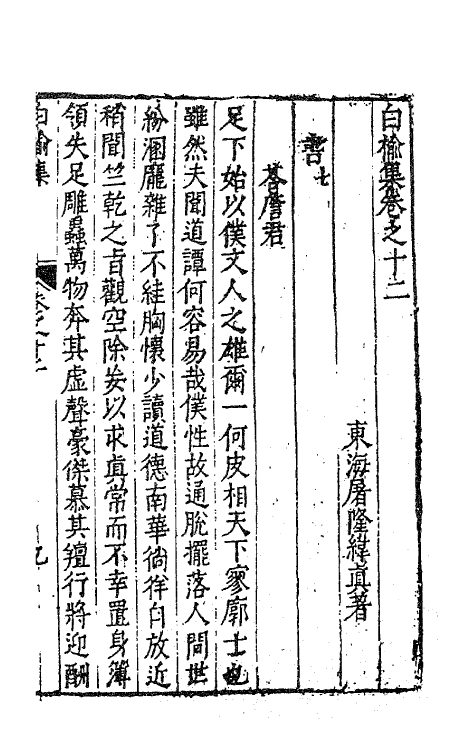 白榆集卷之十二
東海屠隆緯真著
書七
荅詹君
足下始以僕文人之雄爾一何皮相天下寥廓士也
雖然夫聞道譚何容易哉僕性故通脫擺落人間世
紛溷龎雜了不絓胸懷少讀道德南華徜徉自放近
稍聞竺乾之旨觀空除妄以求真常而不幸置身簿
領失足雕蟲萬物奔其虛聲豪傑慕其羶行將迎酬
白榆集